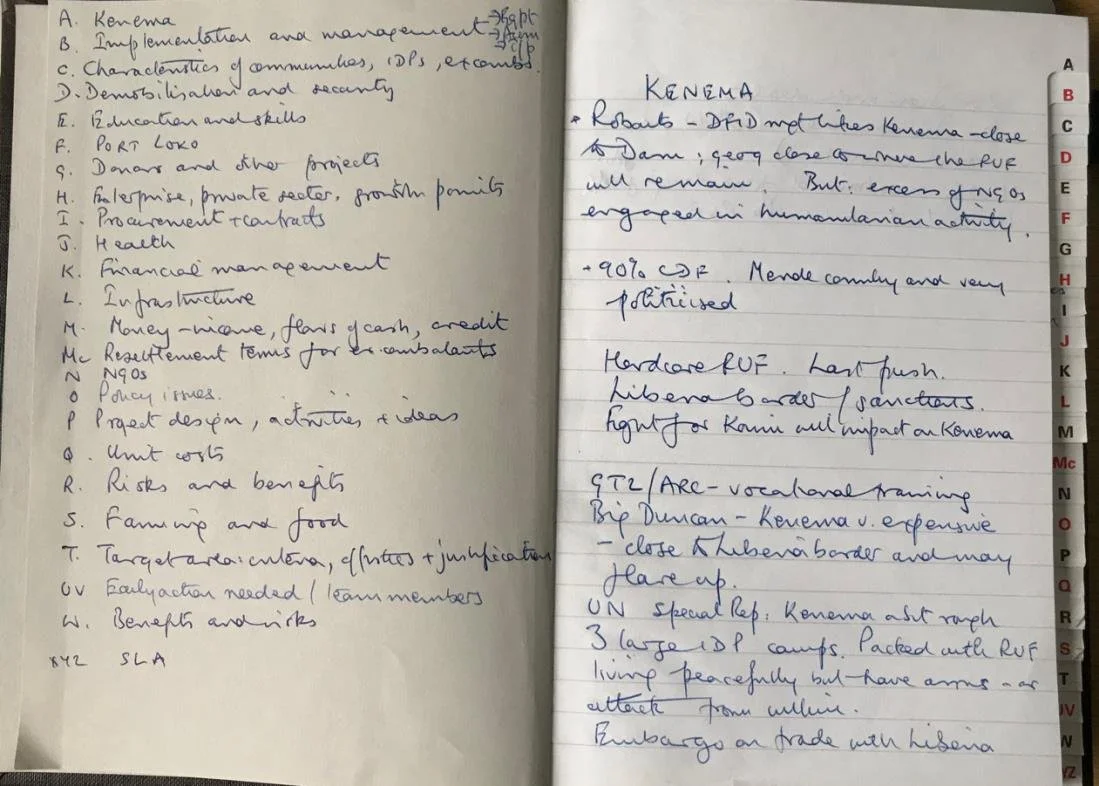 A. Kenema
B. Implementation and management →Rqpt
→
→
C. Characteristics of communities, IDPs, excombs.
D. Demobilisation and security
E. Education and skills
F. PORT LOKO
G. Donors and other projects
H. Enterprise, private sector, growth points
I. Procurement + contracts
J. Health
K. Financial management
L. Infrastructure
M. Money - income, flows of cash, credit
Mc Resettlement terms for ex-combatants
N NGOs
O Policy issues.
P Project design, activities + ideas
Q. Unit costs
R. Risks and benefits
S. Farming and food
T. Target area: criteria, + justification
UV Early action needed / team members
W. Benefits and risks
XYZ SLA
KENEMA
Robarts - DFID mgt likes Kenema - close
to Daru; geog close to where the RUF
will remain. But: excess of NGOs
engaged in humanitarian activity.
+ 90% CDF. Mende country and very
politicised
Hardcore RUF. Last push.
Liberia border / sanctions.
Fight for Kono will impact on Kenema
GTZ/ARC - vocational training
Big Duncan - Kenema v. expensive
- close to Liberia border and may
flare up.
UN Special Rep: Kenema a bit rough
3 large IDP camps. Packed with RUF
living peacefully but have arms - or
attack from within.
Embargo on trade with Liberia
A
B
C
D
E
F
G
H
I
J
K
L
M
Mc
N
O
P
Q
R
S
T
UV
W
YZ